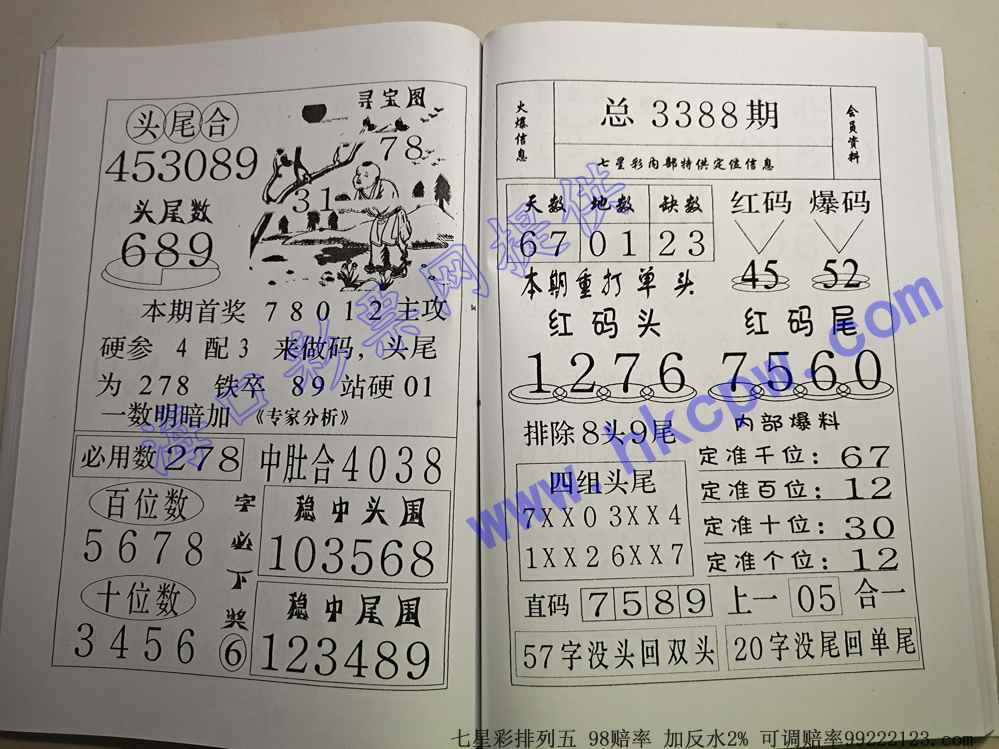 寻宝图
头尾合
453089
78
31
头尾数
689
本期首奖 78012 主攻
硬参 4 配 3 来做码，头尾
为 278 铁卒 89 站硬 01
一数明暗加 《专家分析》
必用数 278 中肚合 4038
百位数
5678
十位数
3456
字必下奖 6
稳中头围
103568
稳中尾围
123489
火爆信息
总 3388期
七星彩内部特供定位信息
会员资料
天数 地数 缺数
67 01 23
红码 爆码
45 52
本期重打单头
红码头 红码尾
1276 7560
排除8头9尾
内部爆料
四组头尾
7XX0 3XX4
1XX2 6XX7
定准千位：67
定准百位：12
定准十位：30
定准个位：12
直码 7589 上一 05 合一
57字没头回双头
20字没尾回单尾
海口彩票网提供
www.hkcpw.com
七星彩排列五 98赔率 加反水2% 可调赔率99222123.com